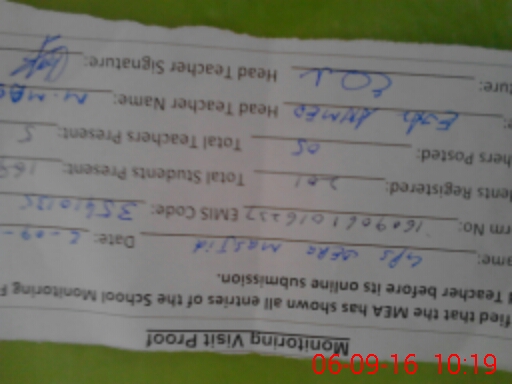 Monitoring Visit Proof
fied that the MEA has shown all entries of the School Monitoring F
Teacher before its online submission.
ame: GPS MASJID Date: 6-09-
rm No: EMIS Code: 35410125
ents Registered: 201 Total Students Present: 169
hers Posted: 05 Total Teachers Present: 5
e: AHMED Head Teacher Name:
ture: Head Teacher Signature:
06-09-16 10:19